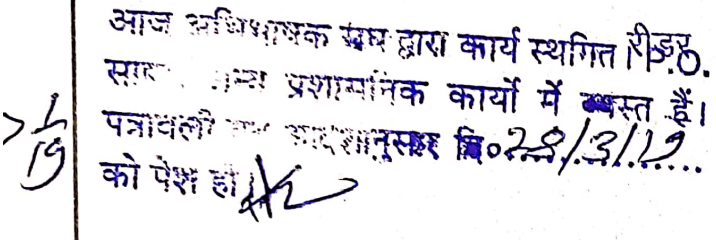 आज अभिभाषक संघ द्वारा कार्य स्थगित
अन्य प्रशासनिक कार्यों में व्यस्त हैं।
पत्रावली आदेशानुसार दि० 28/3/19
को पेश हो
1/19